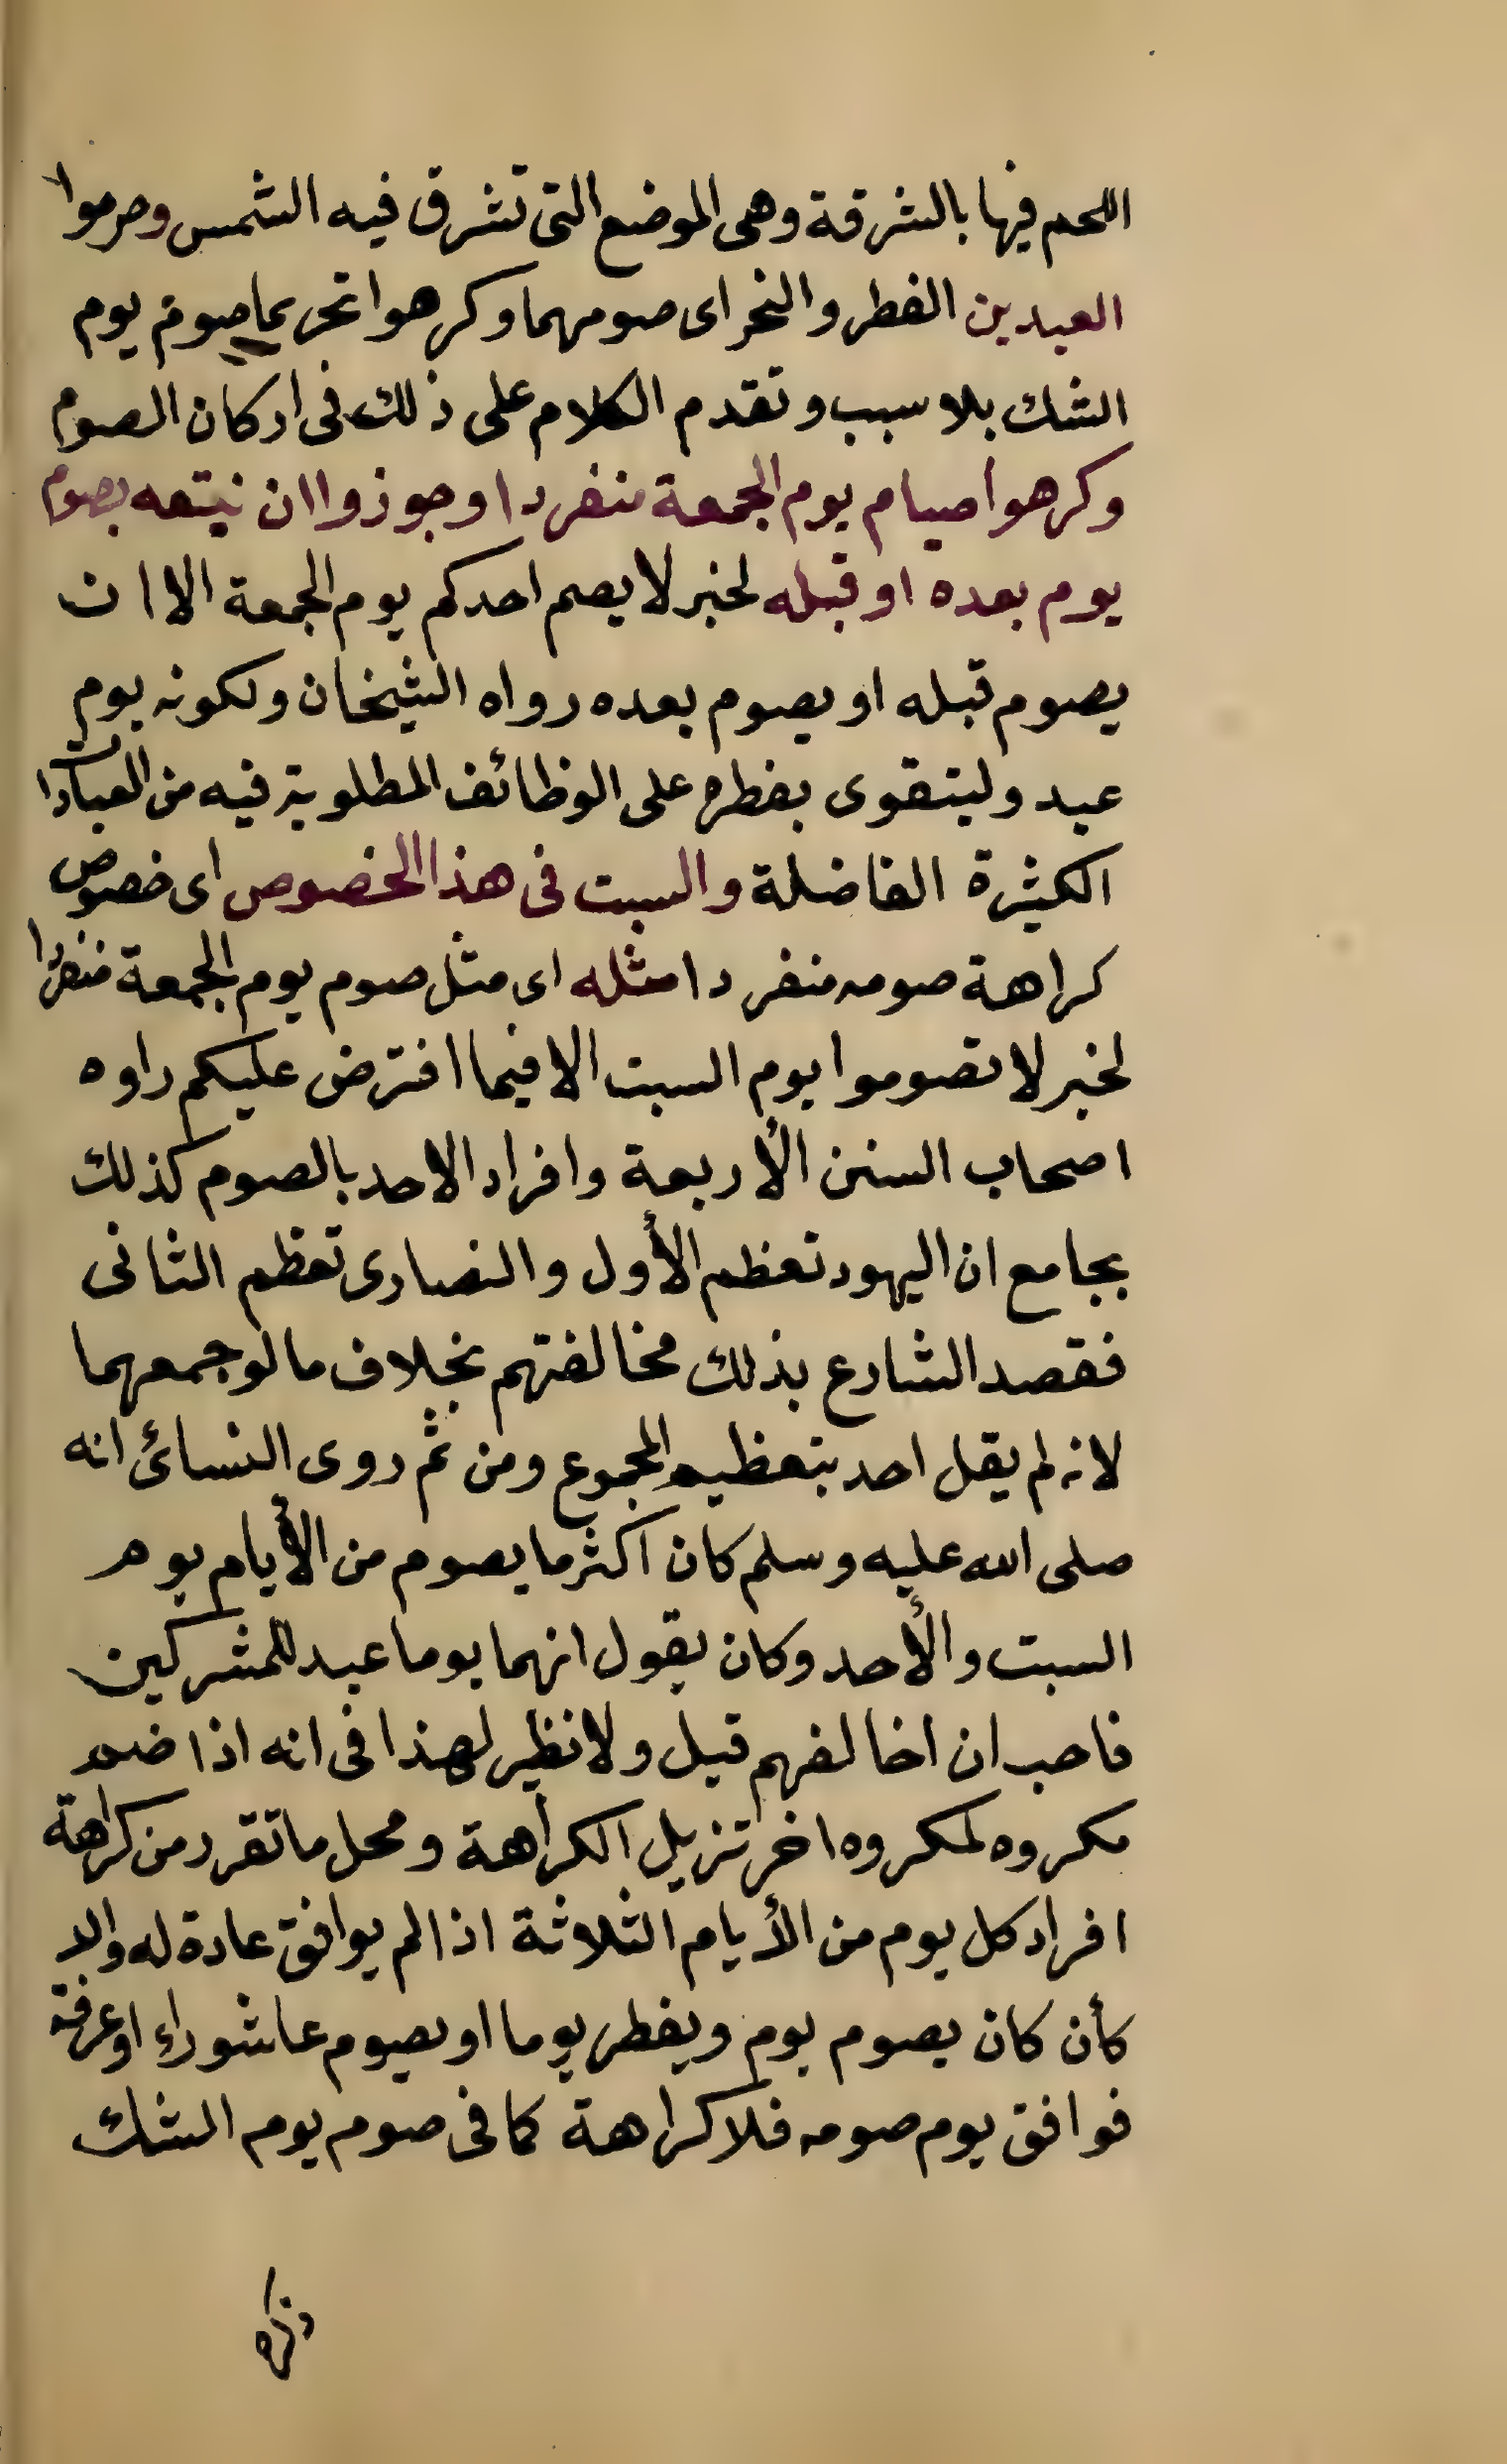 اللحم فيها بالشرقة وهى الموضع التى تشرق فيه الشمس وحرموا
العيدين الفطر والنحر اى صومهما وكرهوا تحريما صوم يوم
الشك بلا سبب وتقدم الكلام على ذلك فى اركان الصوم
وكرهوا صيام يوم الجمعة منفردا وجوزوا ان نيتعه بصوم
يوم بعده او قبله لخبر لا يصم احدكم يوم الجمعة الا ان
يصوم قبله او يصوم بعده رواه الشيخان ولكونه يوم
عيد وليتقوى بفطره على الوظائف المطلوبة فيه من العبادات
الكثيرة الفاضلة والسبت فى هذا الخصوص اى خصوص
كراهة صومه منفردا مثله اى مثل صوم يوم الجمعة منفردا
لخبر لا تصوموا يوم السبت الا فيما افترض عليكم راوه
اصحاب السنن الأربعة وافراد الاحد بالصوم كذلك
بجامع ان اليهود تعظم الأول والنصارى تعظم الثانى
فقصد الشارع بذلك مخالفتهم بخلاف ما لو جمعهما
لانه لم يقل احد بتعظيم المجموع ومن ثم روى النسائى انه
صلى الله عليه وسلم كان اكثر ما يصوم من الأيام يوم
السبت والأحد وكان يقول انهما يوما عيد للمشركين
فاحب ان اخالفهم قيل ولا نظير لهذا فى انه اذا ضم
مكروه لمكروه اخر تزيل الكراهة ومحل ما تقرر من كراهة
افراد كل يوم من الأيام الثلاثة اذا لم يوافق عادة له والا
كأن كان يصوم يوم ويفطر يوما او يصوم عاشوراء او عرفة
فوافق يوم صومه فلا كراهة كما فى صوم يوم الشك
ذكره